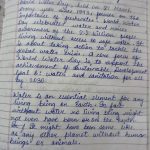 World Water day, held on 22 March
importance of freshwater. World Water
Day celebrates water and raises
awareness of the 2.2 billion people
living without access to safe water. It
is about taking action to tackle the
global water crisis. A core focus of
World Water day is to support the
achievement of Sustainable Development
Goal 6: water and sanitation for all
by 2030.
Water is an essential element for any
living being on Earth. In fact
without water no living being might
not even have been on the Earth.
Or it might have been same like
any other planet without human
beings or animals.